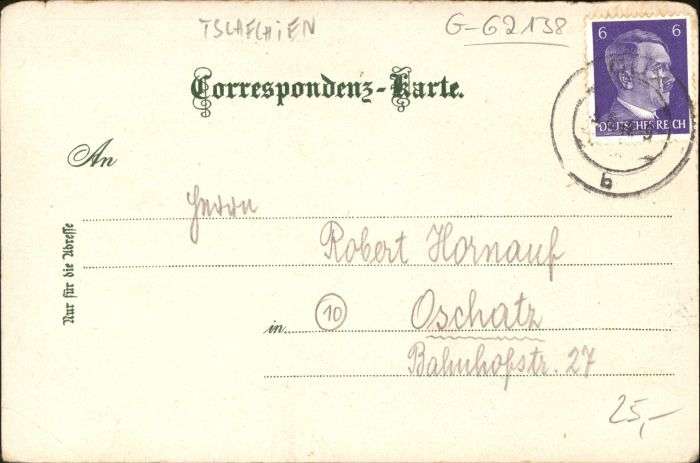 TSCHECHIEN
G-62138
6 6
DEUTSCHES REICH
Correspondenz-Karte.
b
An
Herrn
Nur für die Adresse
Robert Hornauf
in 10 Oschatz
Bahnhofstr. 27
25,-